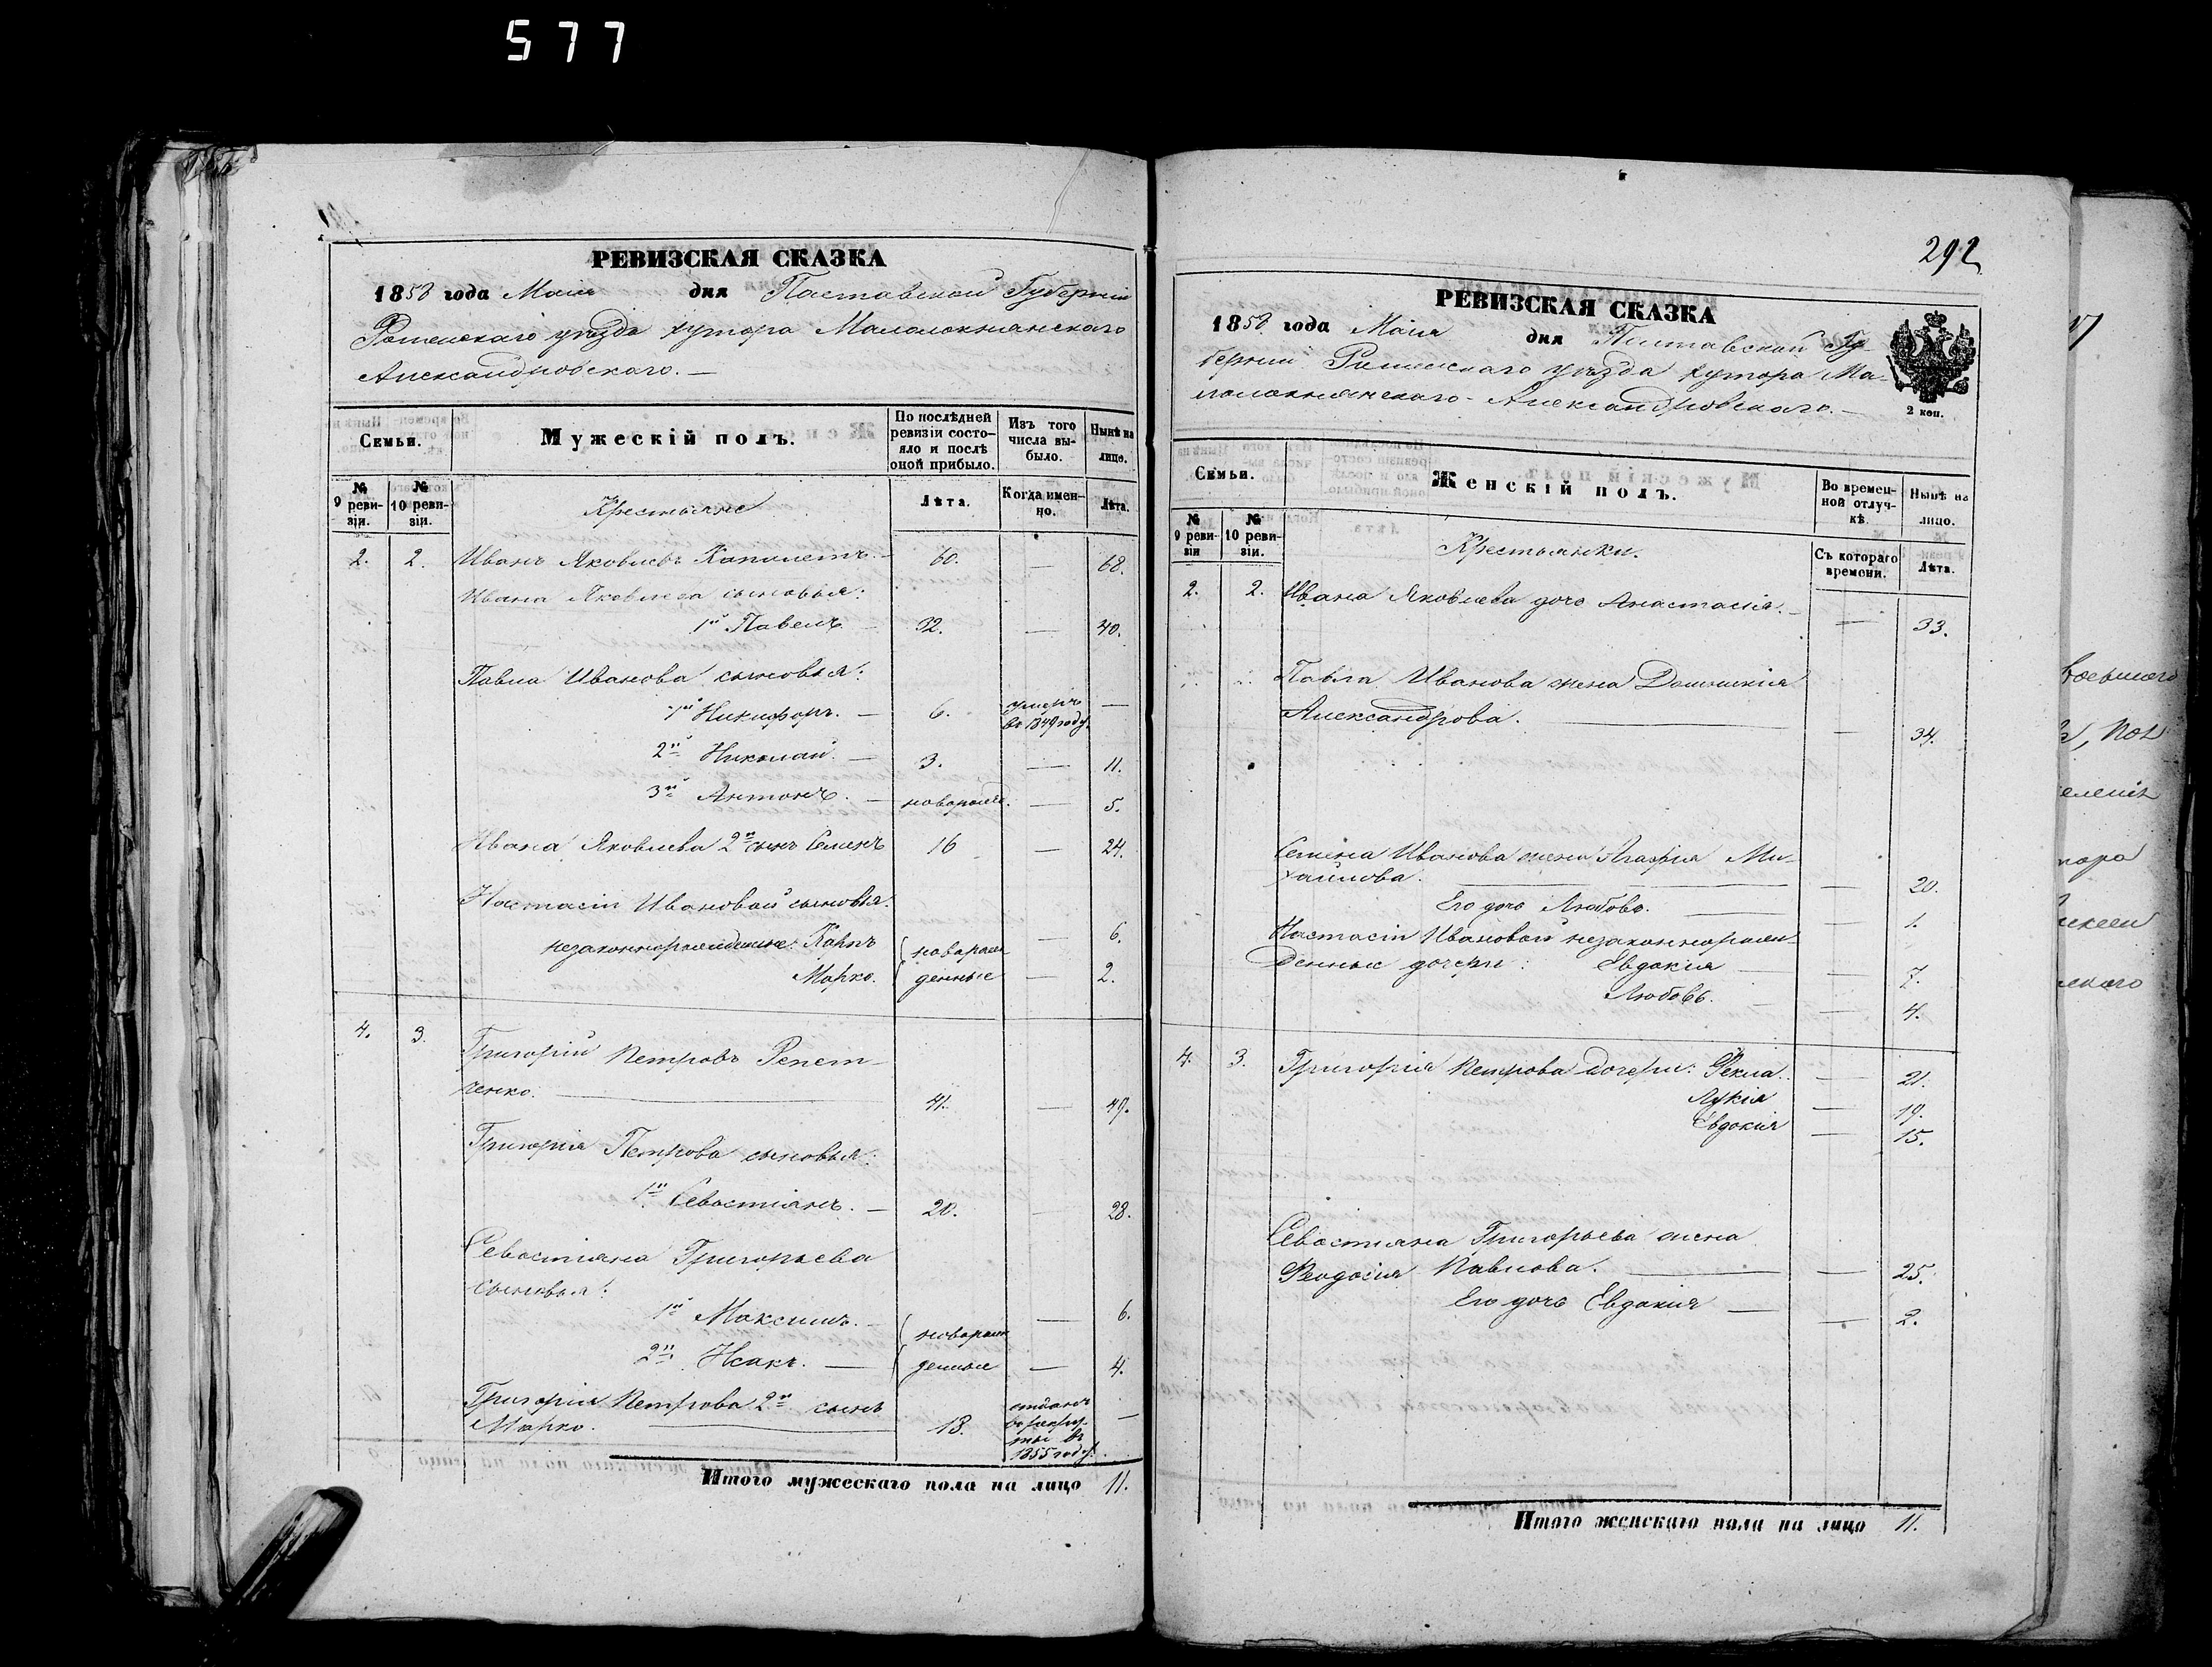 577
РЕВИЗСКАЯ СКАЗКА
1858 года Маія дня Полтавской Губерніи
Роменскаго уѣзда хутора Малолокнянскаго
Александровскаго. —
Семьи. Мужескій полъ. По послѣдней ревизіи состояло и послѣ оной прибыло. Изъ того числа выбыло. Нынѣ на лицо.
№ 9 ревизіи. № 10 ревизіи. Крестьяне Лѣта. Когда именно. Лѣта.
2. 2. Иванъ Яковлевъ 60. — 68.
Ивана Яковлева сыновья:
1й Павелъ — 32. — 40.
Павла Иванова сыновья:
1й Никифоръ. — 6. умеръ въ 1849 году. —
2й Николай. — 3. — 11.
3й Антонъ. — новорожд. — 5.
Ивана Яковлева 2й сынъ Семенъ 16 — 24.
Настасіи Ивановой сыновья:
незаконнорожденные: Карпъ новорож — 6.
Марко. денные — 2.
4. 3. Григорій Петровъ Репет-
ченко. — 41. — 49.
Григорія Петрова сыновья:
1й Севастіянъ. — 20. — 28.
Севастіяна Григорьева
сыновья:
1й Максимъ. — новорож — 6.
2й Исакъ. — денные — 4.
Григорія Петрова 2й сынъ
Марко. — 18. отданъ въ рекруты въ 1855 году. —
Итого мужескаго пола на лицо 11.
292
РЕВИЗСКАЯ СКАЗКА
1858 года Маія дня Полтавской Гу-
берніи Роменскаго уѣзда хутора Ма-
лолокнянскаго-Александровскаго. —
2 коп.
Семьи. Женскій полъ. Во временной отлучкѣ. Нынѣ на лицо.
№ 9 ревизіи № 10 ревизіи. Крестьянки. Съ котораго времени. Лѣта.
2. 2. Ивана Яковлева дочь Анастасія. — — 33.
Павла Иванова жена Домникія
Александрова. — — 34.
Семена Иванова жена Агафія Ми-
хайлова. — — 20.
Его дочь Любовь. — — 1.
Настасіи Ивановой незаконнорож-
денные дочери: Евдокія — — 7.
Любовь. — — 4.
4. 3. Григорія Петрова дочери: Фекла. — 21.
Лукія — 19.
Евдокія — 15.
Севастіяна Григорьева жена
Феодосія Павлова. — — 25.
Его дочь Евдокія — — 2.
Итого женскаго пола на лицо 11.